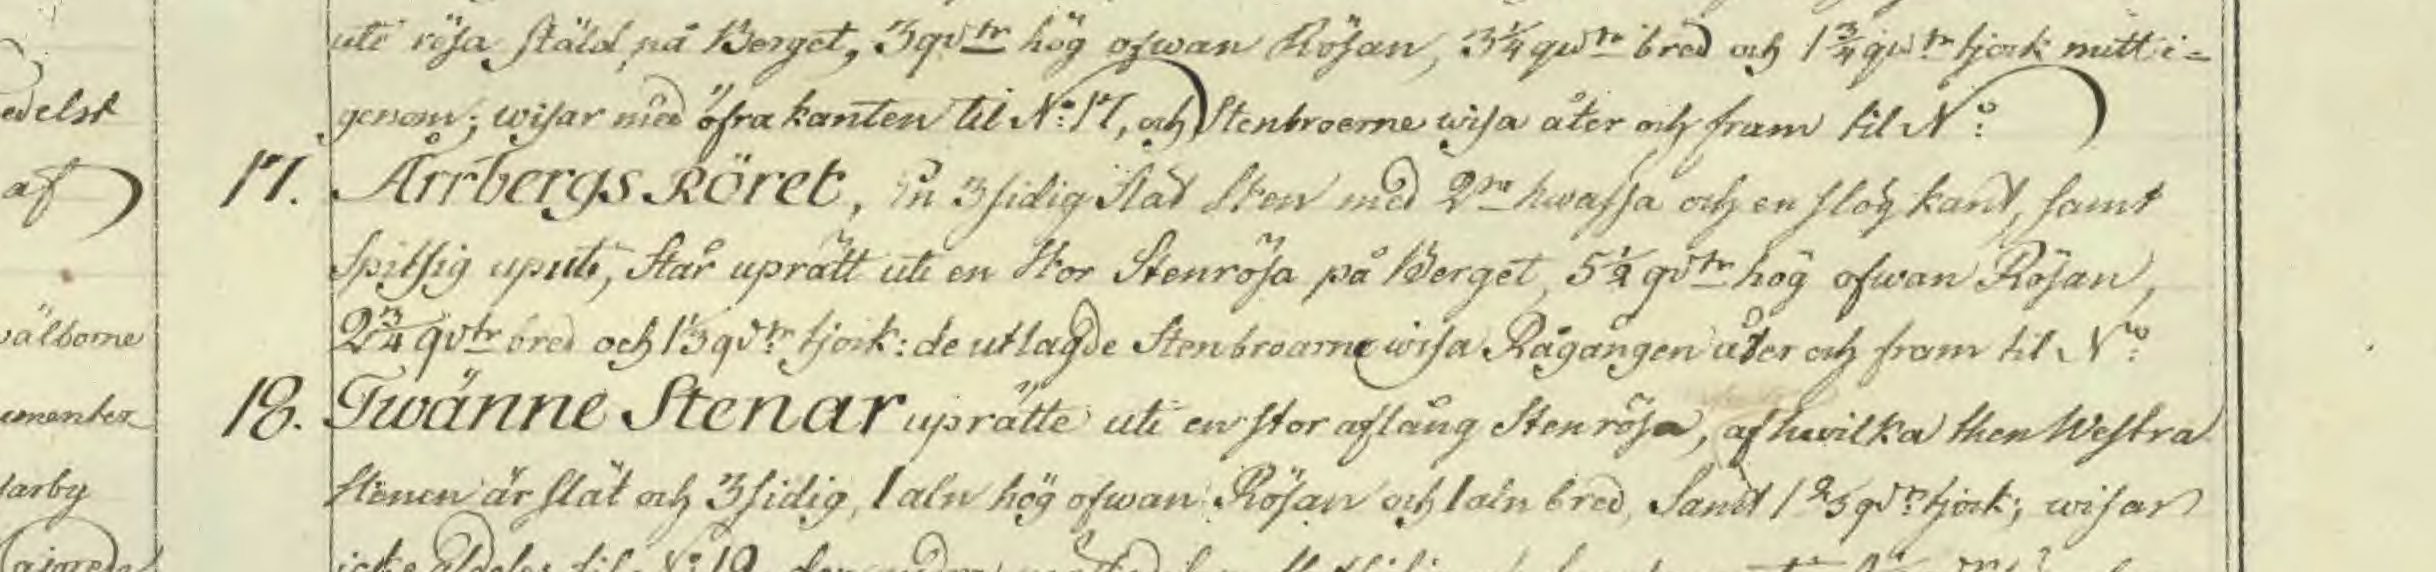 ute rösa stäld på Berget, 3 qvtr hög ofwan Rösan, 3¼ qwtr bred och 1¾ qwtr tjock mitt i=
edelst genom; wisar med öfra kanten til N:o 17, och Stenbroerne wisa åter och fram til N:o
af 17. Arrbergs Röret, en 3sidig slät Sten med 2ne hwassa och en slög kant, samt
spitsig upute, står uprätt uti en stor Stenrösa på Berget, 5¼ qvtr hög ofwan Rösan,
wälborne 2¾ qvtr bred och 1⅓ qvtr tjock: de utlagde Stenbroarne wisa Rågången åter och fram til N:o
umenter 18. Twänne Stenar uprätte uti en stor aflång Stenrösa, af hwilka then Westra
arby Stenen är slät och 3sidig, 1 aln hög ofwan Rösan och 1 aln bred, samt 1⅔ qvtr tjock; wisar
icke aldeles til N:o 19